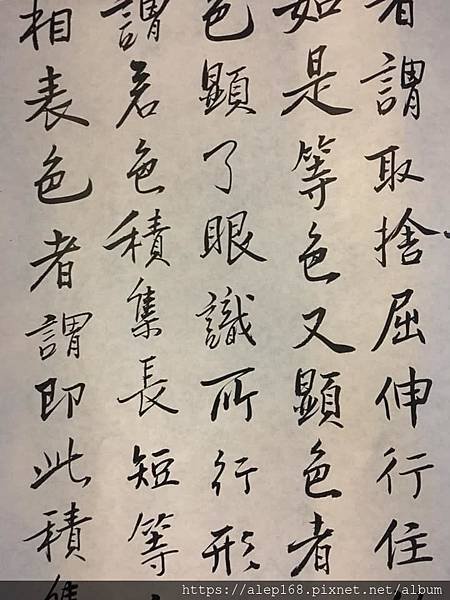 者謂取捨屈伸行住
如是等色又顯色者
色顯了眼識所行形
謂若色積集長短等
相表色者謂即此積集
https://alep168.pixnet.net/album